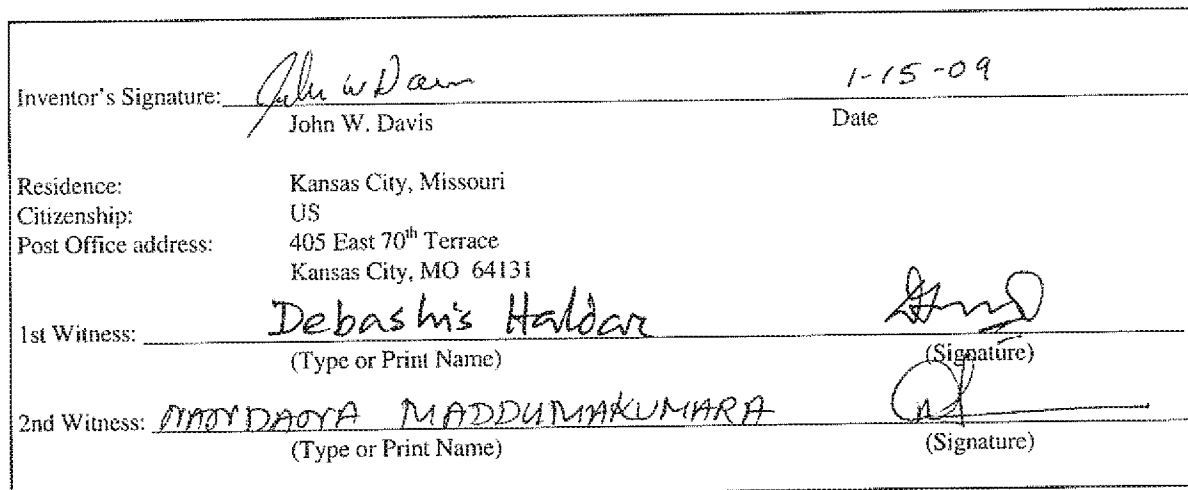 Inventor's Signature: John W Davis 1-15-09
John W. Davis Date
Residence: Kansas City, Missouri
Citizenship: US
Post Office address: 405 East 70th Terrace
Kansas City, MO 64131
1st Witness: Debashis Haldar
(Type or Print Name) (Signature)
2nd Witness: MADDUMAKUMARA
(Type or Print Name) (Signature)